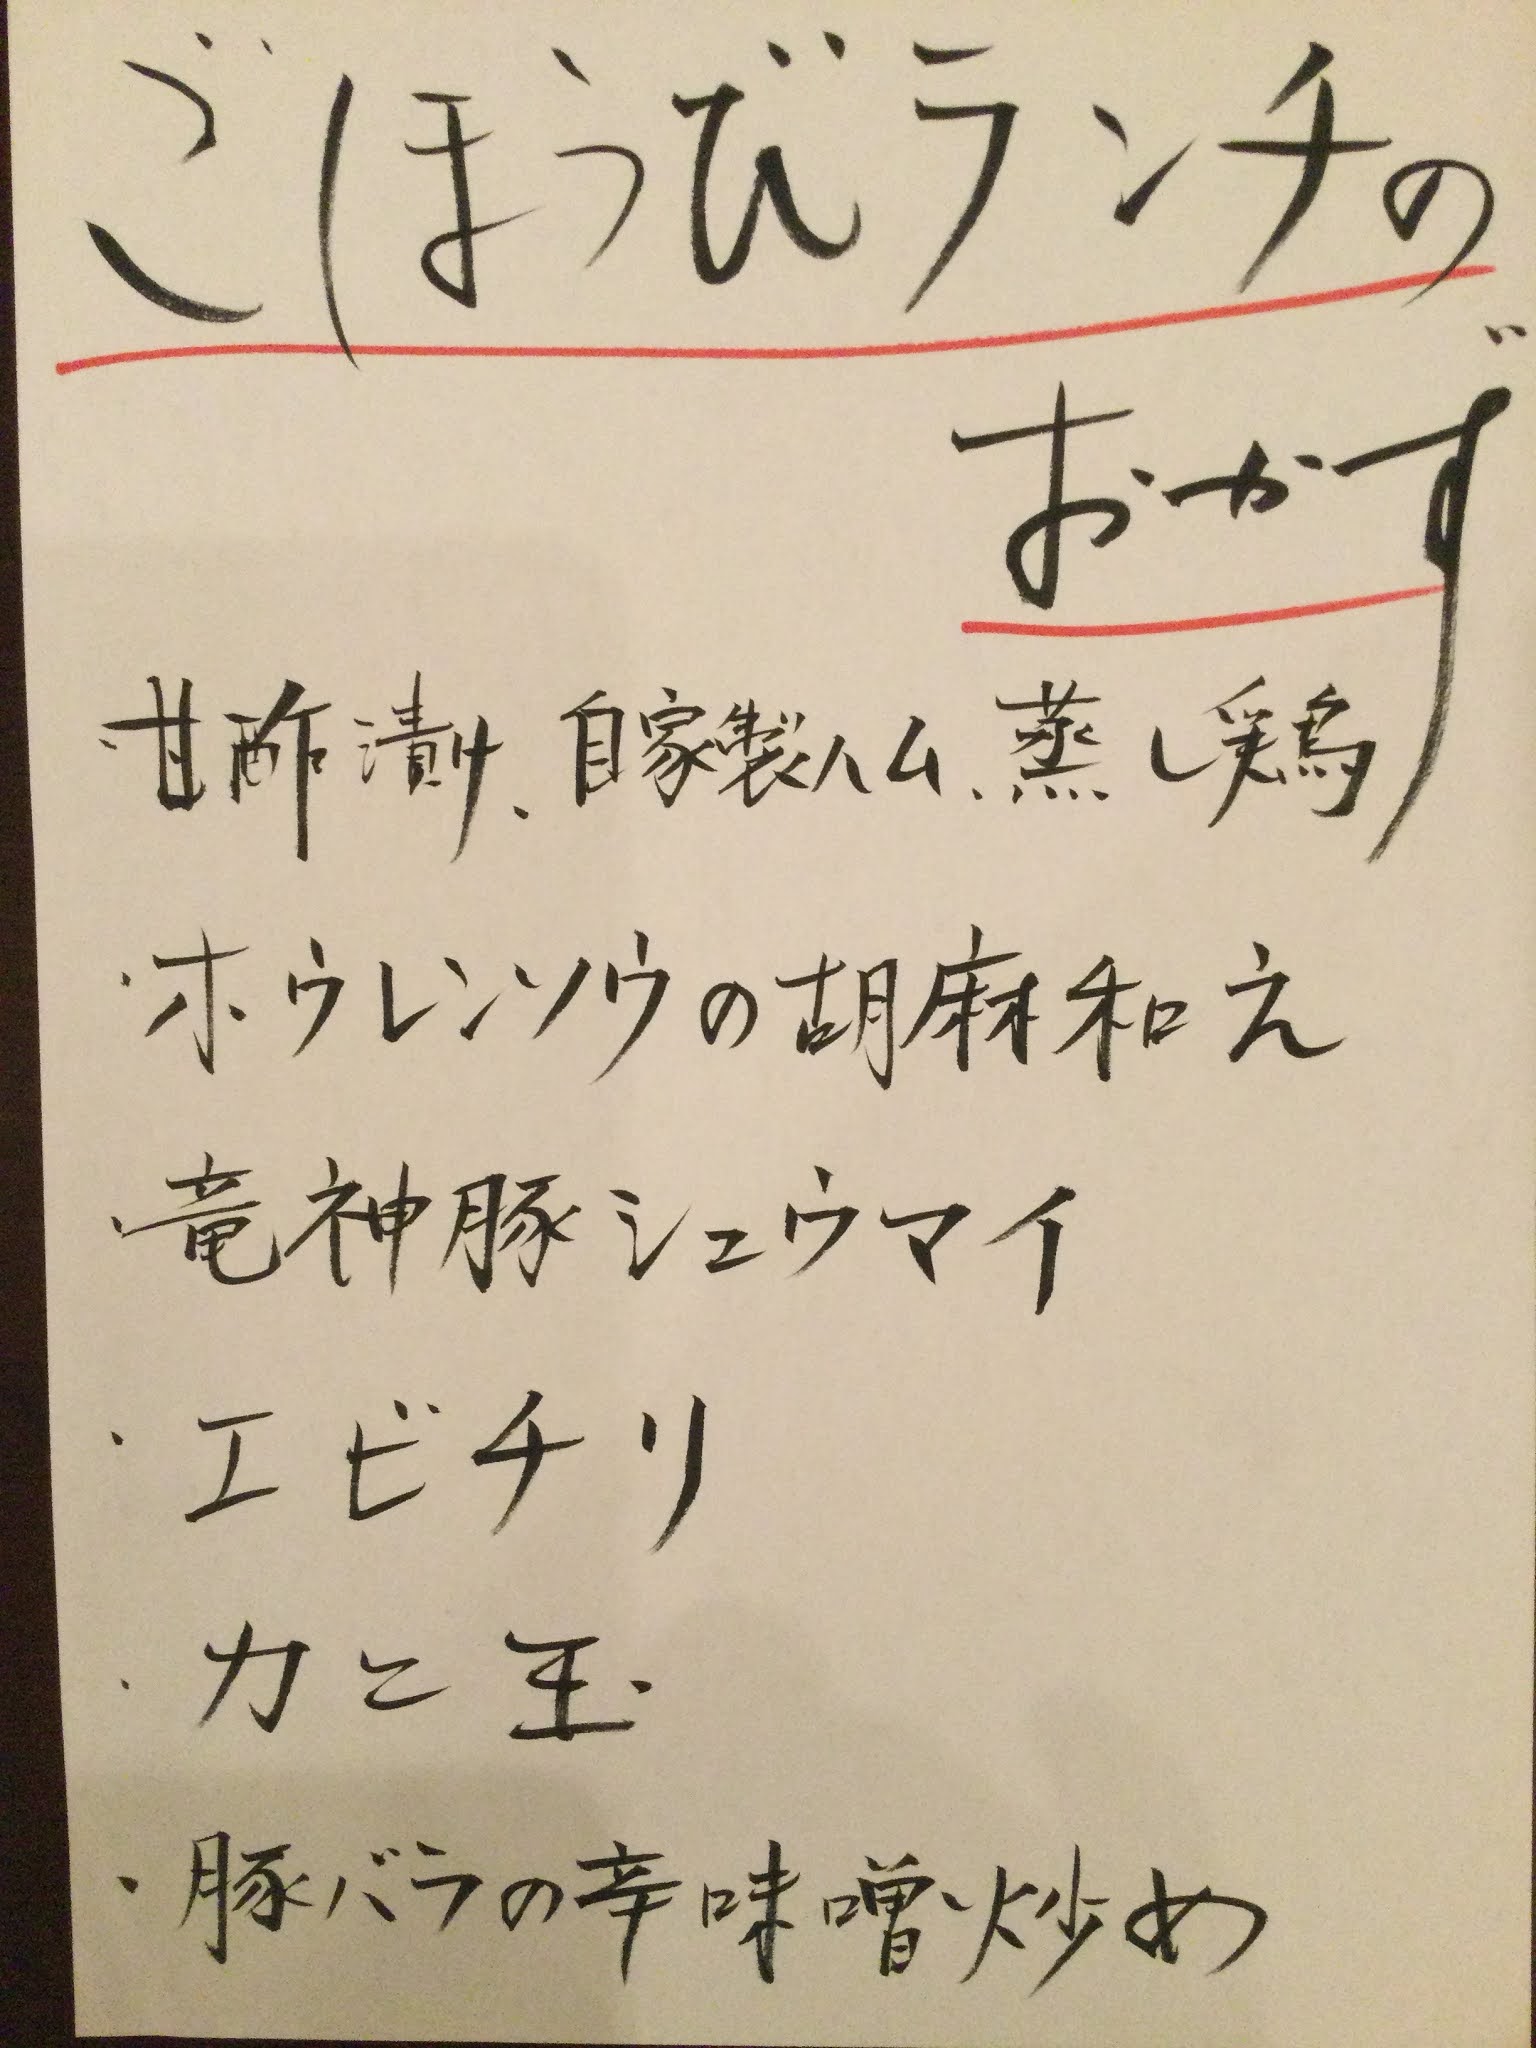 ごほうびランチの
おかず
・甘酢漬け、自家製ハム、蒸し鶏
・ホウレンソウの胡麻和え
・竜神豚シュウマイ
・エビチリ
・カニ玉
・豚バラの辛味噌炒め